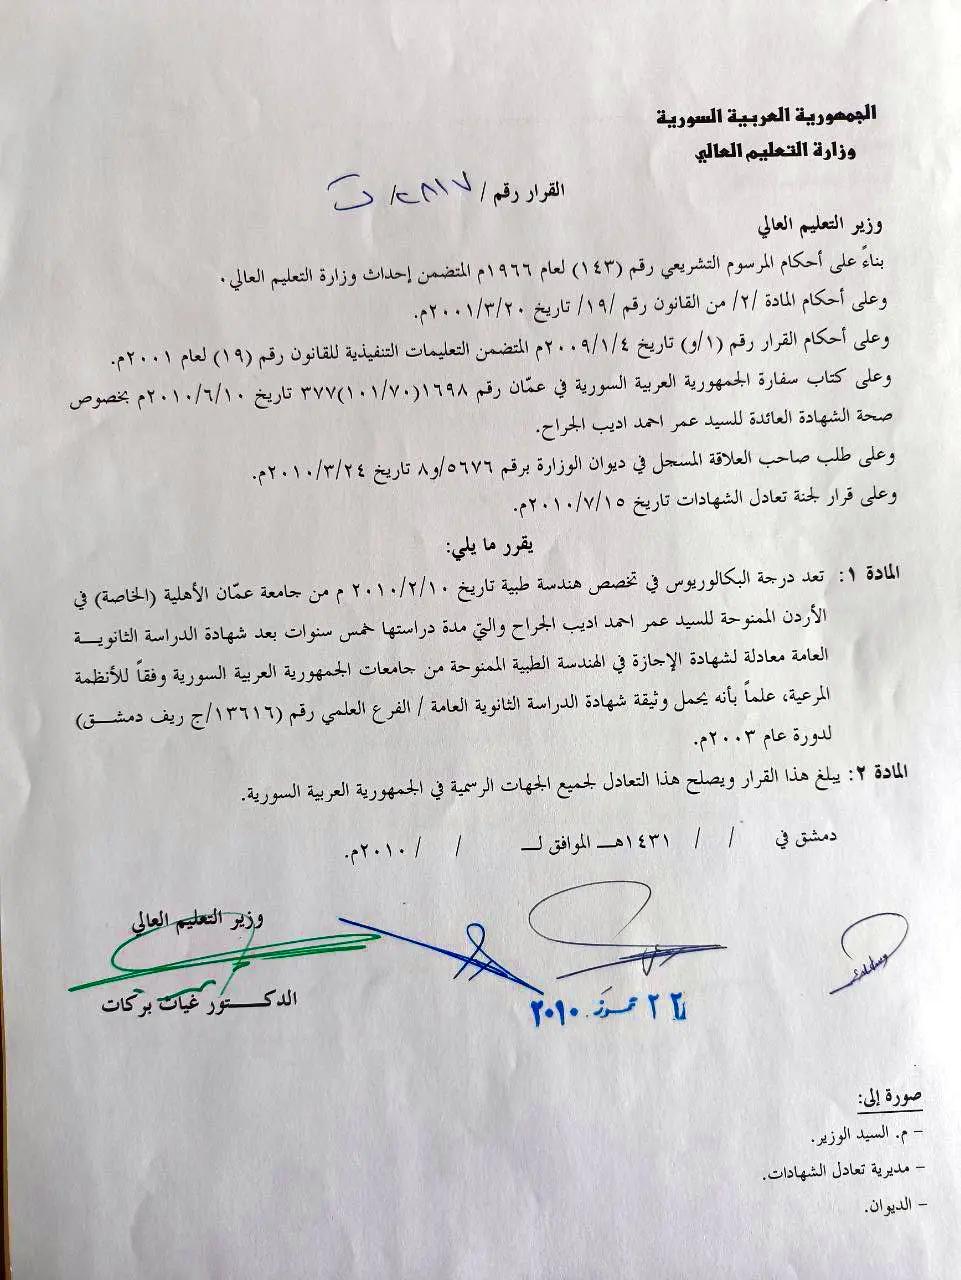 الجمهورية العربية السورية
وزارة التعليم العالي
القرار رقم / ٢٨١٧/ ت
وزير التعليم العالي
بناءً على أحكام المرسوم التشريعي رقم (١٤٣) لعام ١٩٦٦م المتضمن إحداث وزارة التعليم العالي.
وعلى أحكام المادة /٢/ من القانون رقم /١٩/ تاريخ ٢٠٠١/٣/٢٠م.
وعلى أحكام القرار رقم (١/و) تاريخ ٢٠٠٩/١/٤م المتضمن التعليمات التنفيذية للقانون رقم (١٩) لعام ٢٠٠١م.
وعلى كتاب سفارة الجمهورية العربية السورية في عمّان رقم ١٦٩٨(١٠١/٧٠)٣٧٧ تاريخ ٢٠١٠/٦/١٠م بخصوص
صحة الشهادة العائدة للسيد عمر احمد اديب الجراح.
وعلى طلب صاحب العلاقة المسجل في ديوان الوزارة برقم ٥٦٧٦/و٨ تاريخ ٢٠١٠/٣/٢٤م.
وعلى قرار لجنة تعادل الشهادات تاريخ ٢٠١٠/٧/١٥م.
يقرر ما يلي:
المادة ١: تعد درجة البكالوريوس في تخصص هندسة طبية تاريخ ٢٠١٠/٢/١٠ م من جامعة عمّان الأهلية (الخاصة) في
الأردن الممنوحة للسيد عمر احمد اديب الجراح والتي مدة دراستها خمس سنوات بعد شهادة الدراسة الثانويـــة
العامة معادلة لشهادة الإجازة في الهندسة الطبية الممنوحة من جامعات الجمهورية العربية السورية وفقاً للأنظمة
المرعية، علماً بأنه يحمل وثيقة شهادة الدراسة الثانوية العامة / الفرع العلمي رقم (١٣٦١٦/ج ريف دمشـــق)
لدورة عام ٢٠٠٣م.
المادة ٢: يبلغ هذا القرار ويصلح هذا التعادل لجميع الجهات الرسمية في الجمهورية العربية السورية.
دمشق في / / ١٤٣١هــ الموافق لــ / / ٢٠١٠م.
وزير التعليم العالي
٢٢ تموز ٢٠١٠
الدكـــتور غياث بركات
صورة إلى:
– م. السيد الوزير.
– مديرية تعادل الشهادات.
– الديوان.